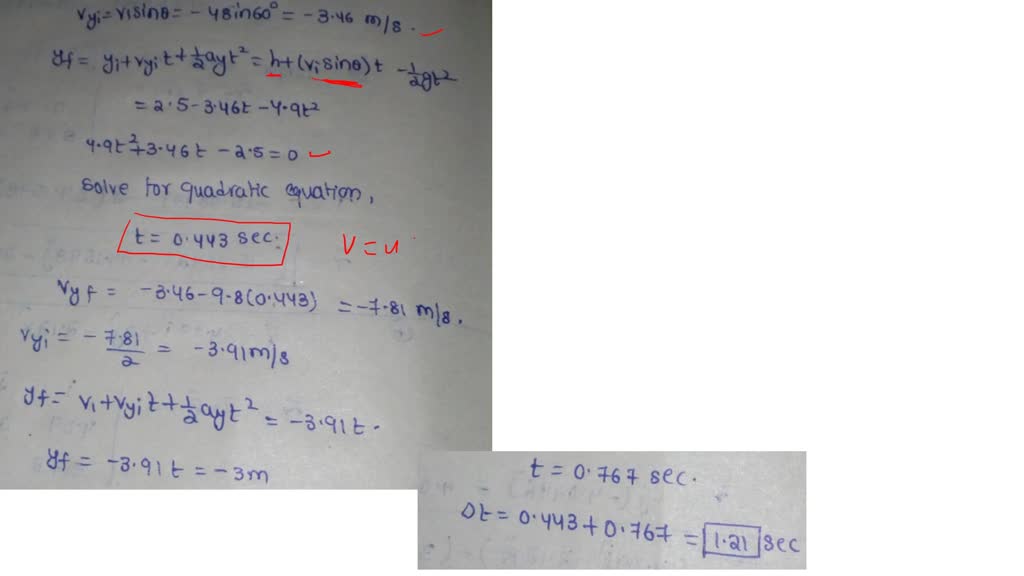 Vyi = V1 sinθ = - 4 sin60° = - 3.46 m/s.
yf = yi + vyi t + 1/2 ay t² = h + (vi sinθ) t - 1/2 gt²
= 2.5 - 3.46t - 4.9t²
4.9t² + 3.46t - 2.5 = 0
Solve for quadratic equation,
t = 0.443 sec.
V = u
Vyf = -3.46 - 9.8(0.443) = -7.81 m/s.
Vyi = - 7.81/2 = -3.91 m/s
yf = V1 + Vyi t + 1/2 ay t² = -3.91t.
yf = -3.91t = -3m
t = 0.767 sec.
Δt = 0.443 + 0.767 = 1.21 sec